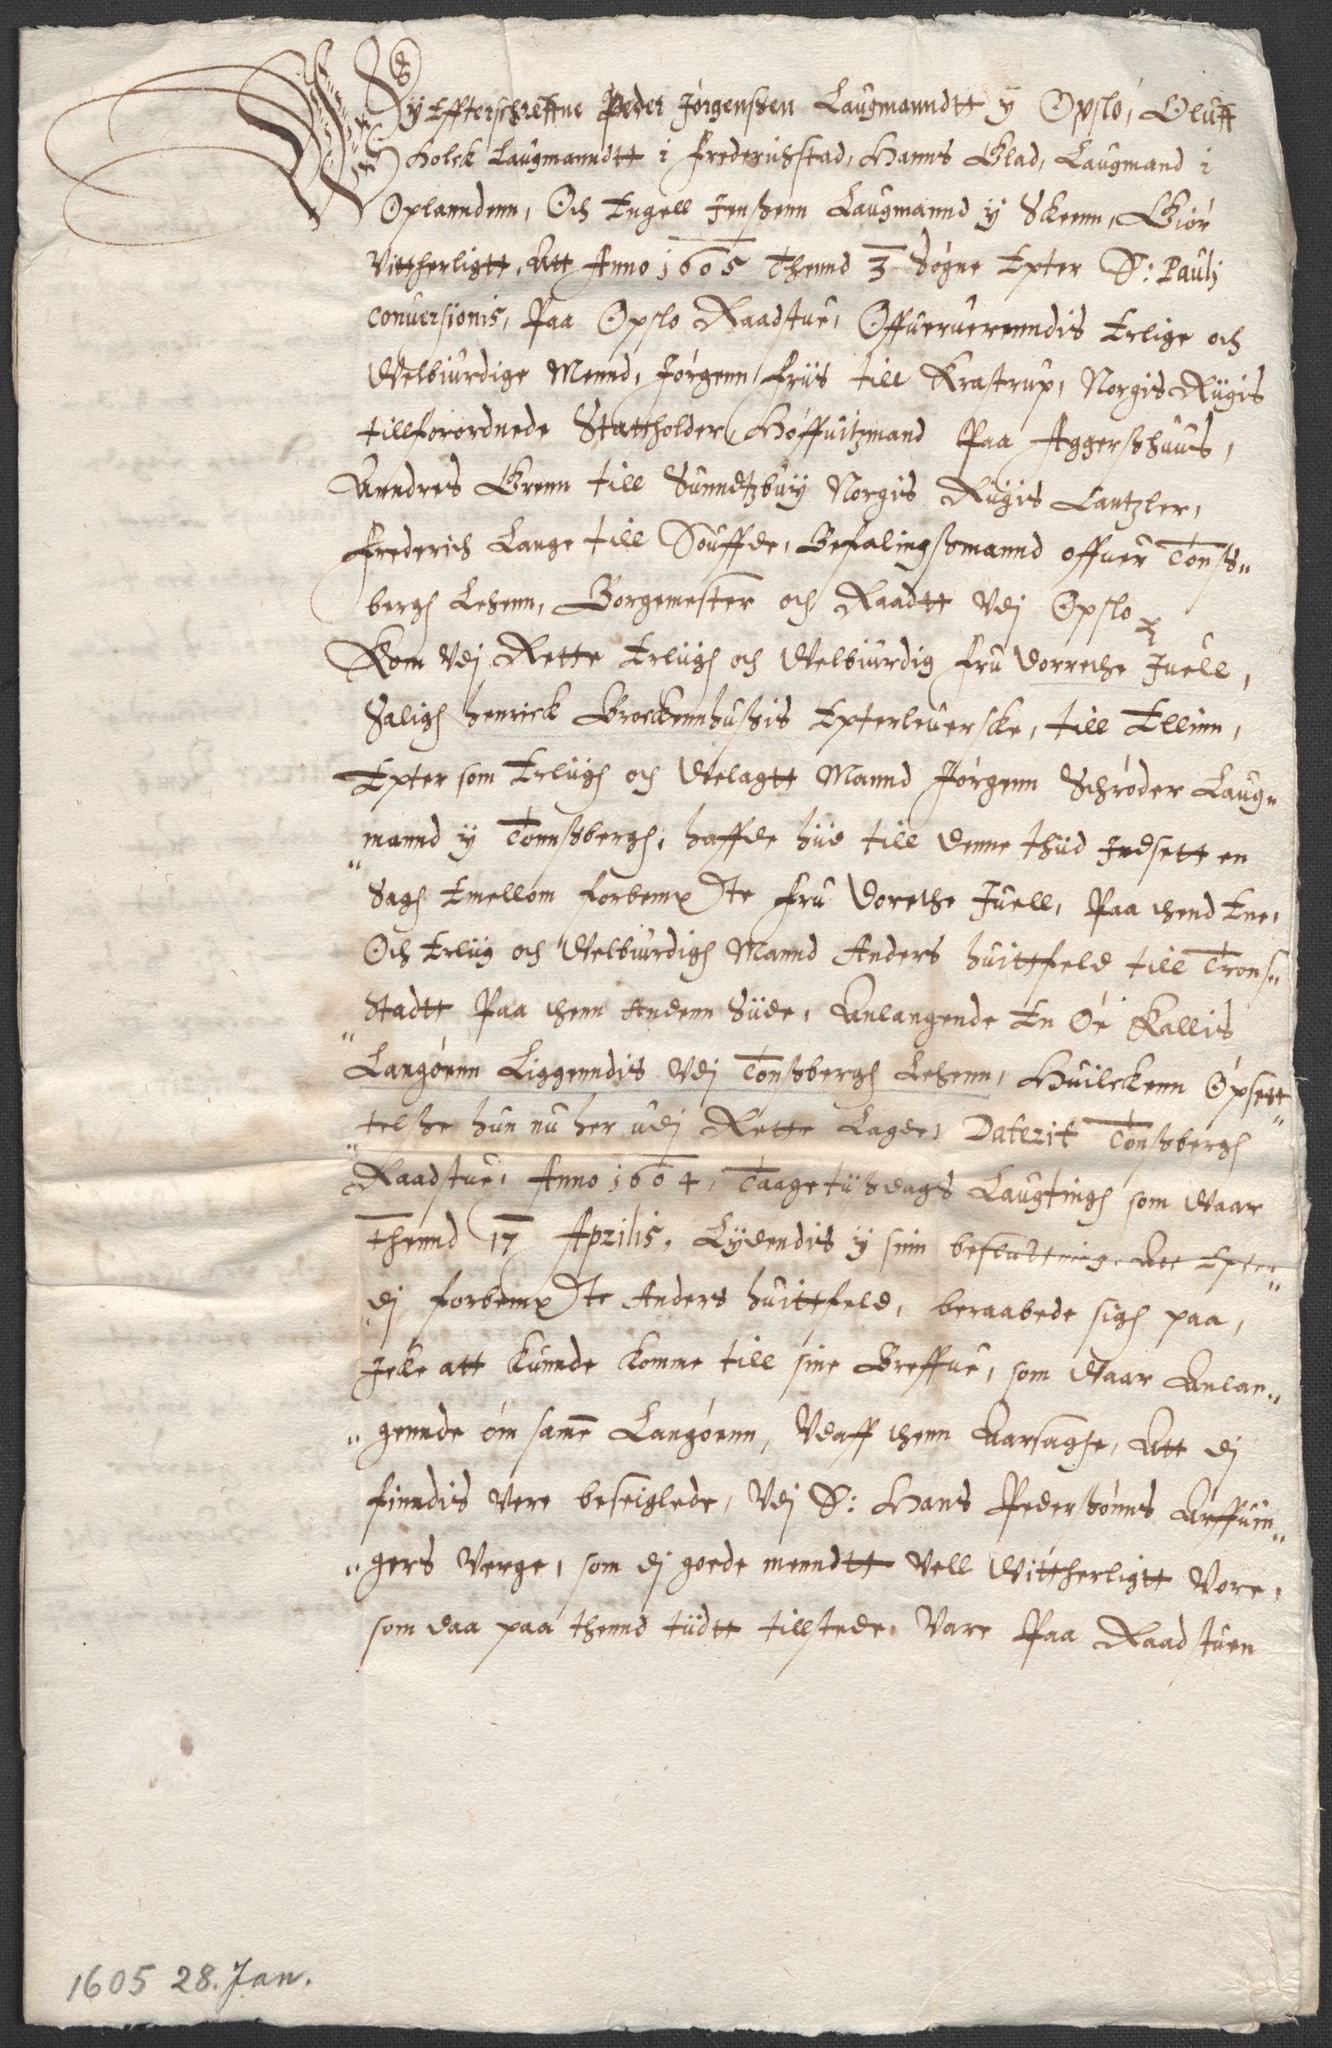 Wy Effterschreffne Peder Jørgenßen Laugmanndtt y Opslo, Oluff
Holck Laugmanndtt i Frederichstad, Hanns Glad, Laugmand i
Oplanndenn, Och Engell Jenßenn Laugmannd y Skeenn, Giør
Vittherligtt, Att Anno 1605 Thennd 3 Søgne Epter S: Paulj
Conuersionis, Paa Opslo Raadstue, Offueruerenndis Erlige och
Welbiurdige Mennd, Jørgenn Friis till Krastrup, Norgis Rigis
tillforordnede Stattholder, Høffuitzmand Paa Aggerßhuus,
Anndres Grenn till Sunndtzbuy Norgis Rigis Cantzler,
Frederich Lange till Souffde, Befalingßmannd offuer Tonß„
bergh Lehenn, Borgemester och Raadtt Vdj Opslo
Kom Vdj Rette Erlügh och Welbiurdig Fru Dorrethe Juell,
Saligh Henrick Brockennhußis Epterleuerske, till Ellinn,
Epter som Erlügh och Welagtt Mannd Jørgenn Schrøder Laug„
mannd y Tønnßbergh, haffde hüd till denne thüd Indsett en
„Sagh Emellom forbemxte Fru Dorethe Juell, Paa thend Ene,
Och Erlüg och Welbiurdigh Mannd Anders Huittfeld till Trons„
„Stadtt Paa thenn Andenn Süde, Anlangende En Øe Kallis
Langøenn Liggenndis Vdj Tonßbergh Lehenn, Huilckenn Opsett„
„telße hun nu her udj Rette Lagde, Daterit Tonßbergh
Raadstue, Anno 1604, Taagetüßdags Laugtingh som Waar
Thennd 17 Aprilis, Lydendis y sinn besluttning, Att Epter„
„dj forbemxte Anders Huittfeld, beraabede sigh paa,
Icke att kunnde komme till sine Breffue, som Waar Anlan„
„gennde om samme Langøenn, Vdaff thenn Aarsaghe, Att dj
finndis Vere beseiglede, Vdj S: Hans Pederßønns Arffuin„
„gers Verge, som dj goede menndtt Vell Wittherligtt Vore,
som daa paa thennd tüdtt tillstede, Vare Paa Raadstuen
1605 28. Jan.